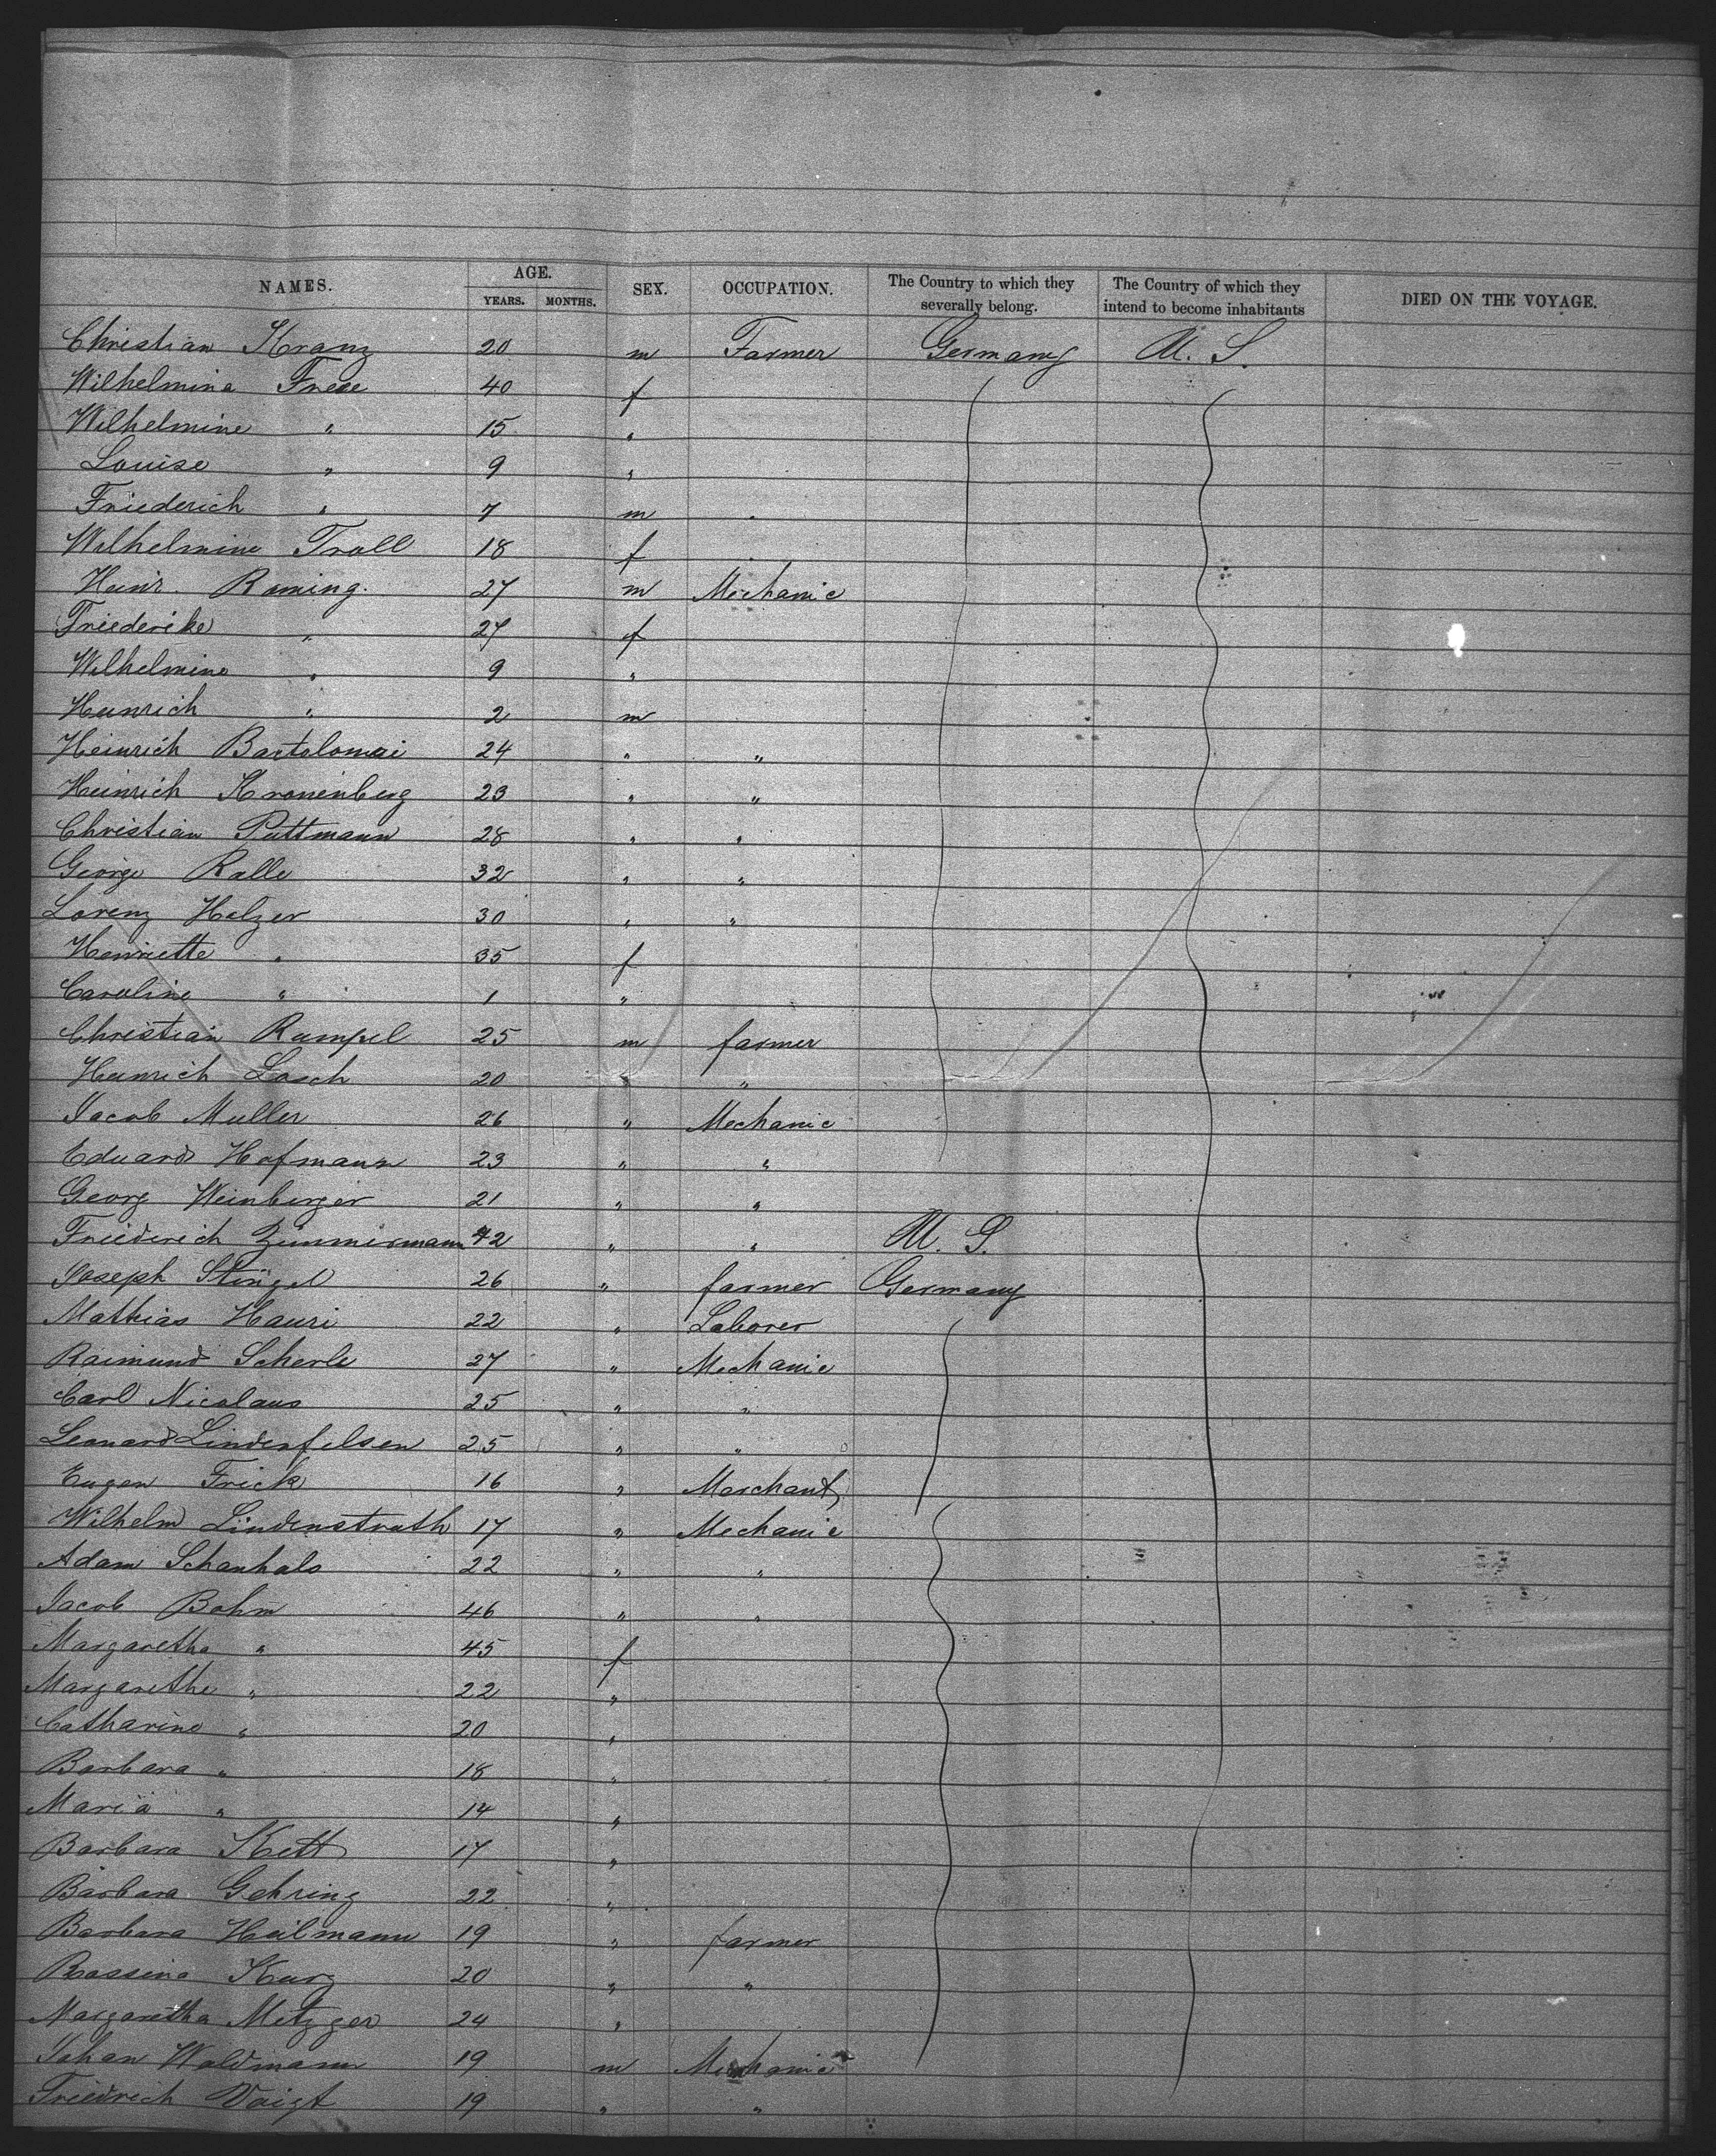 NAMES. AGE. SEX. OCCUPATION. The Country to which they severally belong. The Country of which they intend to become inhabitants DIED ON THE VOYAGE.
YEARS. MONTHS.
Christian Kranz 20 m Farmer Germany U. S.
Wilhelmina Frese 40 f
Wilhelmine " 15 "
Louise " 9 "
Friederich " 7 m
Wilhelmine Troll 18 f
Heinr. Roming. 27 m Mechanic
Friederike " 27 f
Wilhelmine " 9 "
Heinrich " 2 m
Heinrich Bartolomai 24 " "
Heinrich Kronenberg 23 " "
Christian Puttmann 28 " "
George Ralle 32 " "
Lorenz Holzer 30 " "
Henriette " 35 f
Caroline " 1 "
Christian Rumpel 25 m farmer
Heinrich Losch 20 " "
Jacob Muller 26 " Mechanic
Eduard Hofmann 23 " "
Georg Weinberger 21 " "
Friederich Zimmermann 42 " " U. S.
Joseph Stingel 26 " farmer Germany
Mathias Hauri 22 " Laborer
Raimund Scherle 27 " Mechanic
Carl Nicolaus 25 " "
Leonard Lindenfelsen 25 " "
Eugen Frick 16 " Merchant
Wilhelm Lindenstruth 17 " Mechanic
Adam Schanhals 22 " "
Jacob Bohm 46 " "
Margaretha " 45 f
Margarethe " 22 "
Catharine " 20 "
Barbara " 18 "
Maria " 14 "
Barbara Kett 17 "
Barbara Gehring 22 "
Barbara Heilmann 19 " farmer
Rossina Kurz 20 " "
Margaretha Metzger 24 "
Johan Waldmann 19 m Mechanic
Friedrich Voigt 19 " "